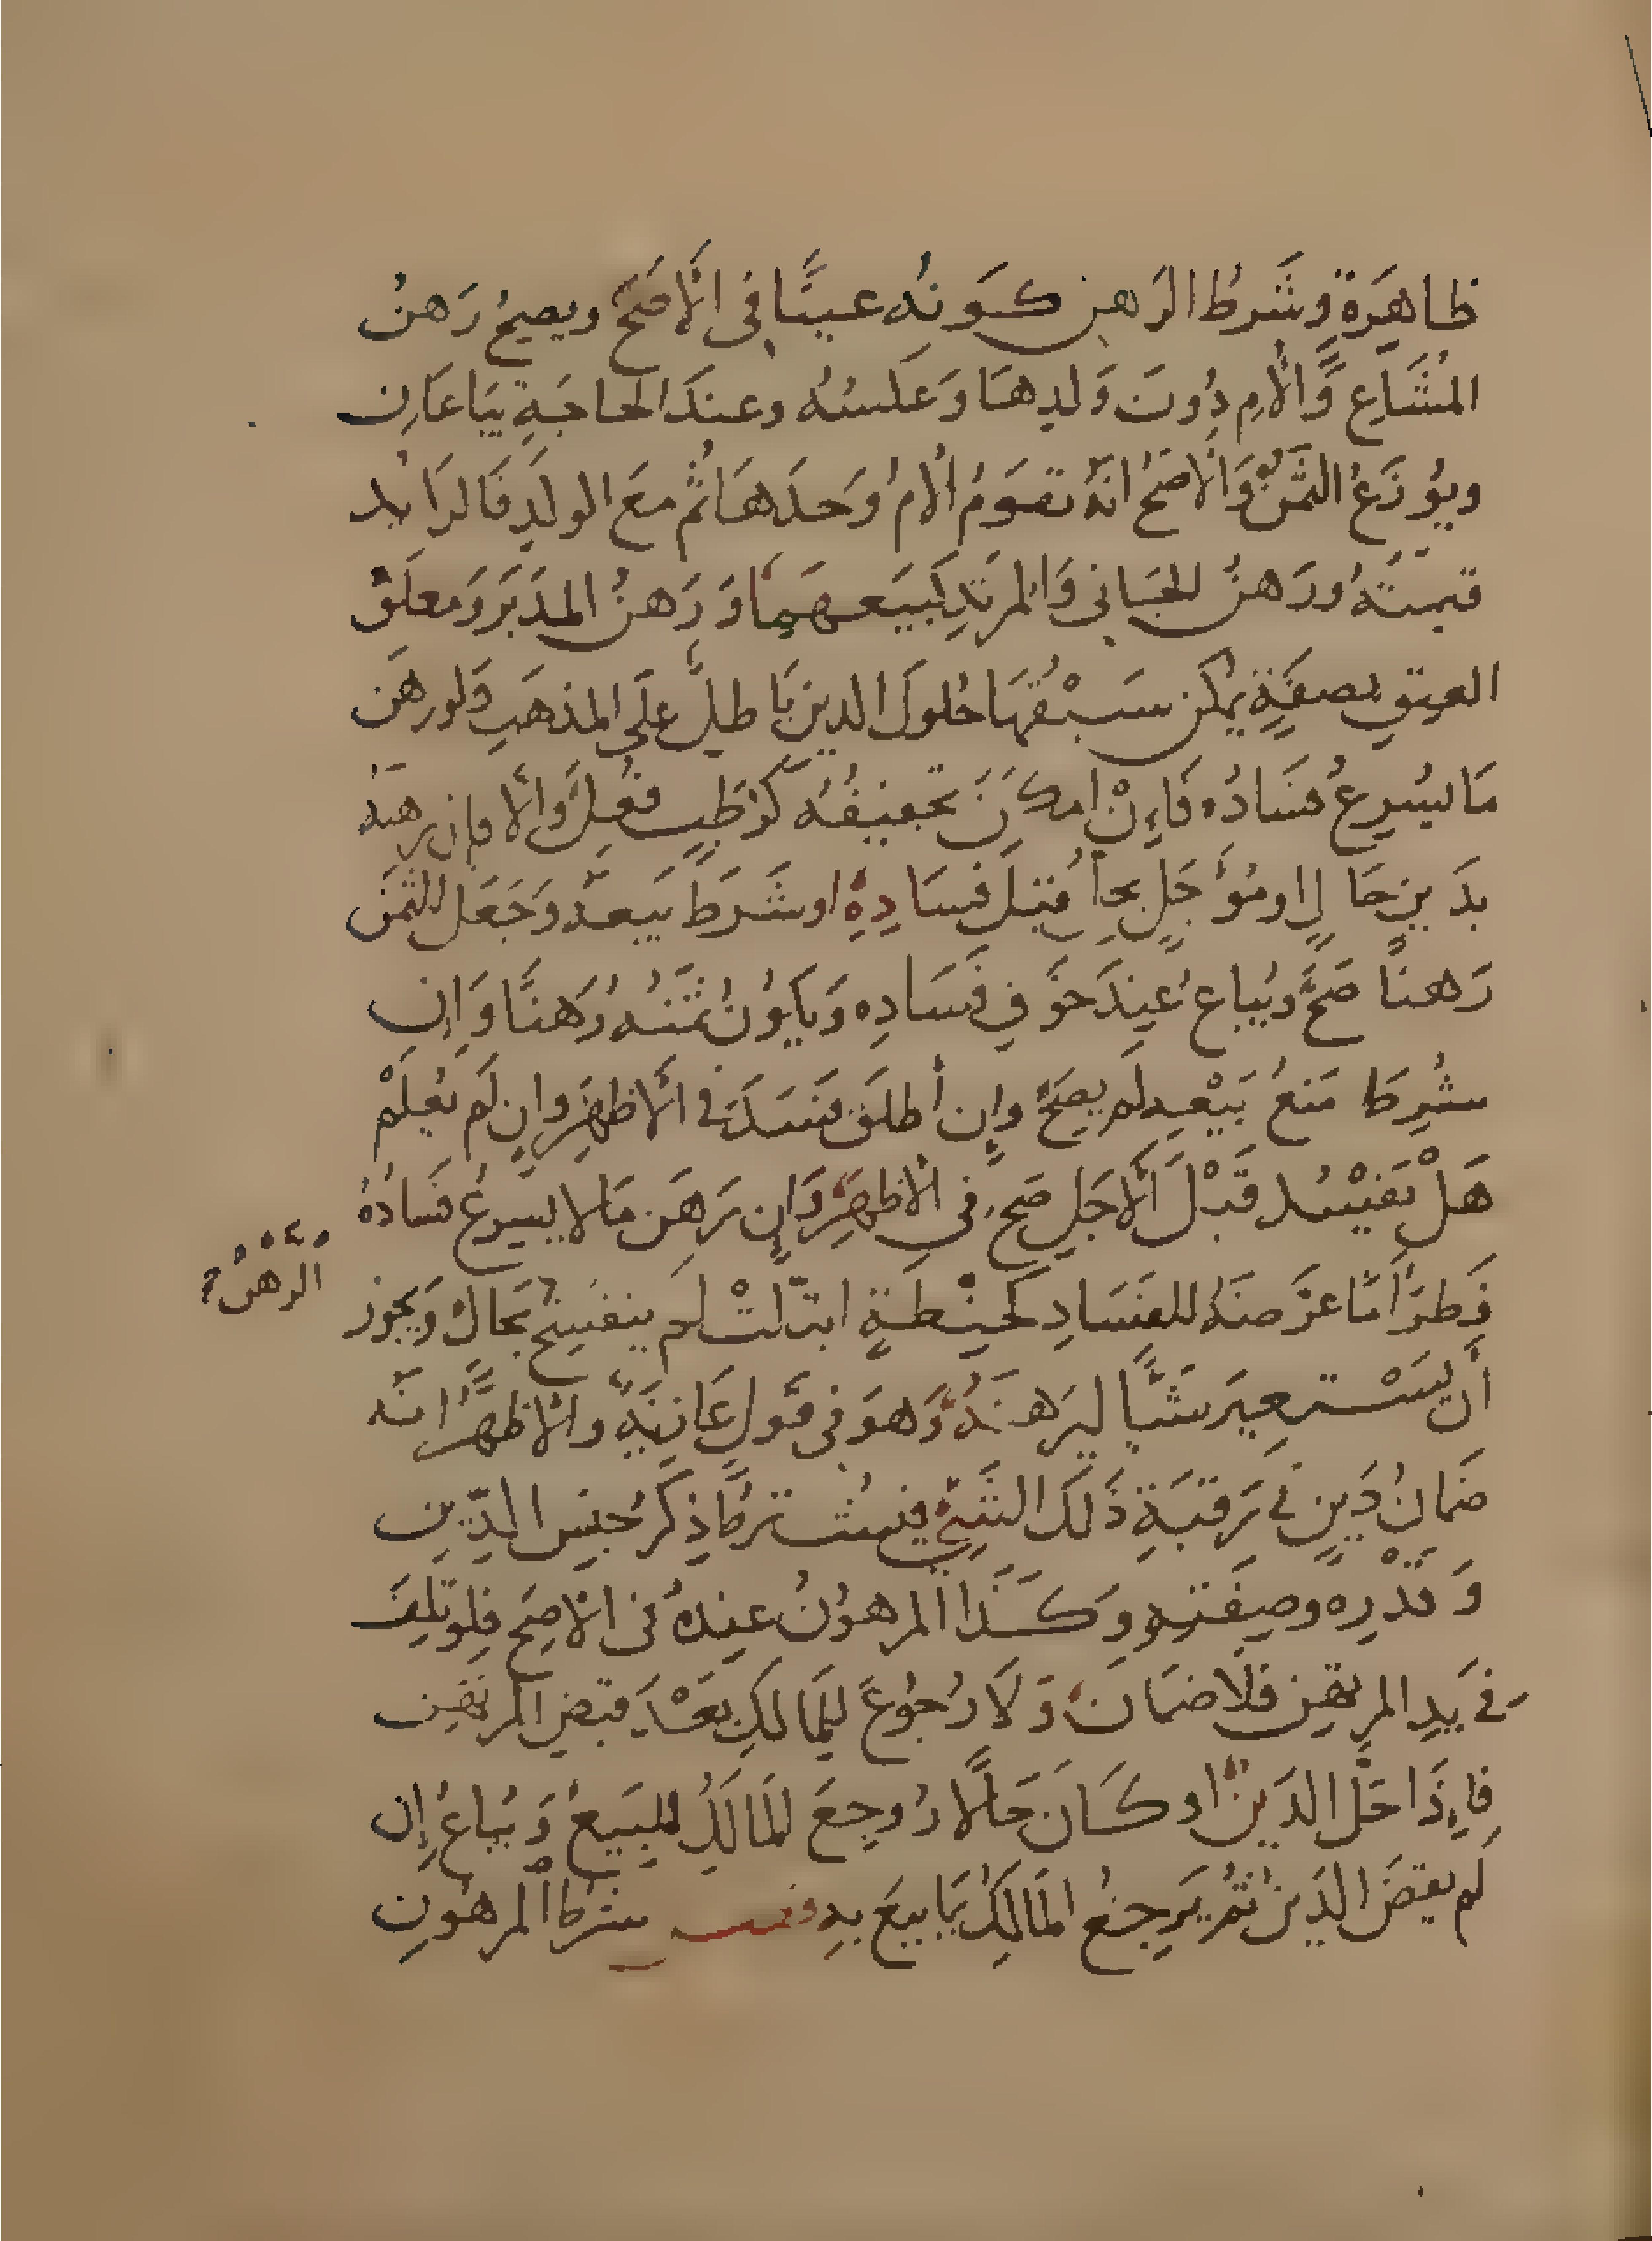 ظاهرة وشرط الرهن كونه عينا في الاصح ويصح رهن
المشاع والام دون ولدها وعكسه وعند الحاجة يباعان
ويوزع الثمن والاصح انه تقوم الام وحدها ثم مع الولد فالزايد
قيمته ورهن الجاني والمرتد كبيعهما ورهن المدبر ومعلق
العتق بصفة يمكن سبقها حلول الدين باطل على المذهب ولو رهن
ما يسرع فساده فإن امكن تجفيفه كرطب فعل والا فإن رهنه
بدين حال او مؤجل يحل قبل فساده او شرط بيعه وجعل الثمن
رهنا صح ويباع عند خوف فساده ويكون ثمنه رهنا وإن
شرط منع بيعه لم يصح وإن أطلق فسد في الاظهر وإن لم يعلم
هل يفسد قبل الاجل صح في الاظهر وإن رهن ما لا يسرع فساده
فطرأ ما عرضه للفساد كحنطة ابتلت لم ينفسخ بحال ويجوز
الرهن
أن يستعير شيئا ليرهنه وهو في قول عارية والاظهر انه
ضمان دين في رقبة ذلك الشيء فيشترط ذكر جنس الدين
وقدره وصفته وكذا المرهون عنده في الاصح فلو تلف
في يد المرتهن فلا ضمان ولا رجوع للمالك بعد قبض المرتهن
فإذا حل الدين او كان حالا روجع المالك للبيع ويباع إن
لم يقض الدين ثم يرجع المالك بما بيع به فصل شرط المرهون